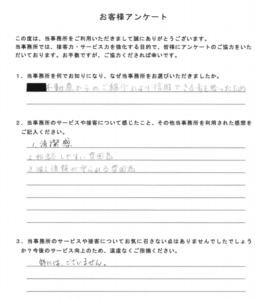 お客様アンケート
この度は、当事務所をご利用いただきまして誠にありがとうございます。
当事務所では、接客力・サービス力を強化する目的で、皆様にアンケートのご協力をいた
だいております。お手数ですが、ご協力くだされば幸いです。
1．当事務所を何でお知りになり、なぜ当事務所をお選びいただきましたか。
不動産からのご紹介により信用できると思ったため
2．当事務所のサービスや接客について感じたこと、その他当事務所を利用された感想を
ご記入ください。
1. 清潔感
2. 相談しやすい雰囲気
3. 個人情報が守られる雰囲気
3．当事務所のサービスや接客についてお気に召さない点はありませんでしたでしょう
か？今後のサービス向上のため、遠慮なくご指摘ください。
特にはございません。